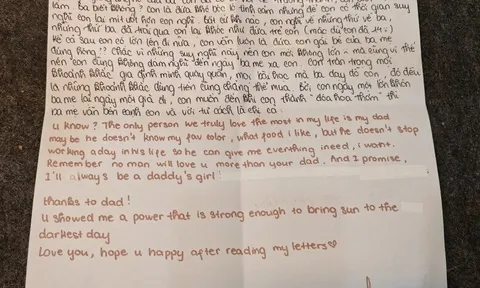 làm. Ba biết không? Con là đứa
nghĩ con lại mít ướt hơn con nghĩ. Bất cứ khi nào, con nghĩ về những thứ về ba,
những thứ ba đã trải qua con lại khóc như đứa trẻ con
kể cả sau con có lớn lên đi nữa, con vẫn luôn là đứa con gái bé của ba mẹ
đúng không?? Chắc vì những suy nghĩ này nên con mới không lớn mà cũng vì thế
nên con cũng không dám nghĩ đến ngày ba mẹ xa con. Con trân trọng mọi
khoảnh khắc gia đình mình quây quần, mọi bài học mà ba dạy dỗ con, đó đều
là những khoảnh khắc đồng tiền cũng chẳng thể mua. Bởi, con ngày một lớn khôn
ba mẹ lại ngày một già đi, con muốn đến khi con thành "đóa hoa thơm" thì
ba mẹ vẫn bên cạnh con và với tư cách là
u know? The only person we truly love the most in my life is my dad
may be he doesn't know my fav color, what food i like, but he doesn't stop
working a day in his life so he can give me everything i need, i want.
Remember no man will love u more than your dad. And I promise,
I'll always be a daddy's girl!
thanks to dad!
u showed me a power that is strong enough to bring sun to the
darkest day
Love you, hope u happy after reading my letters♡